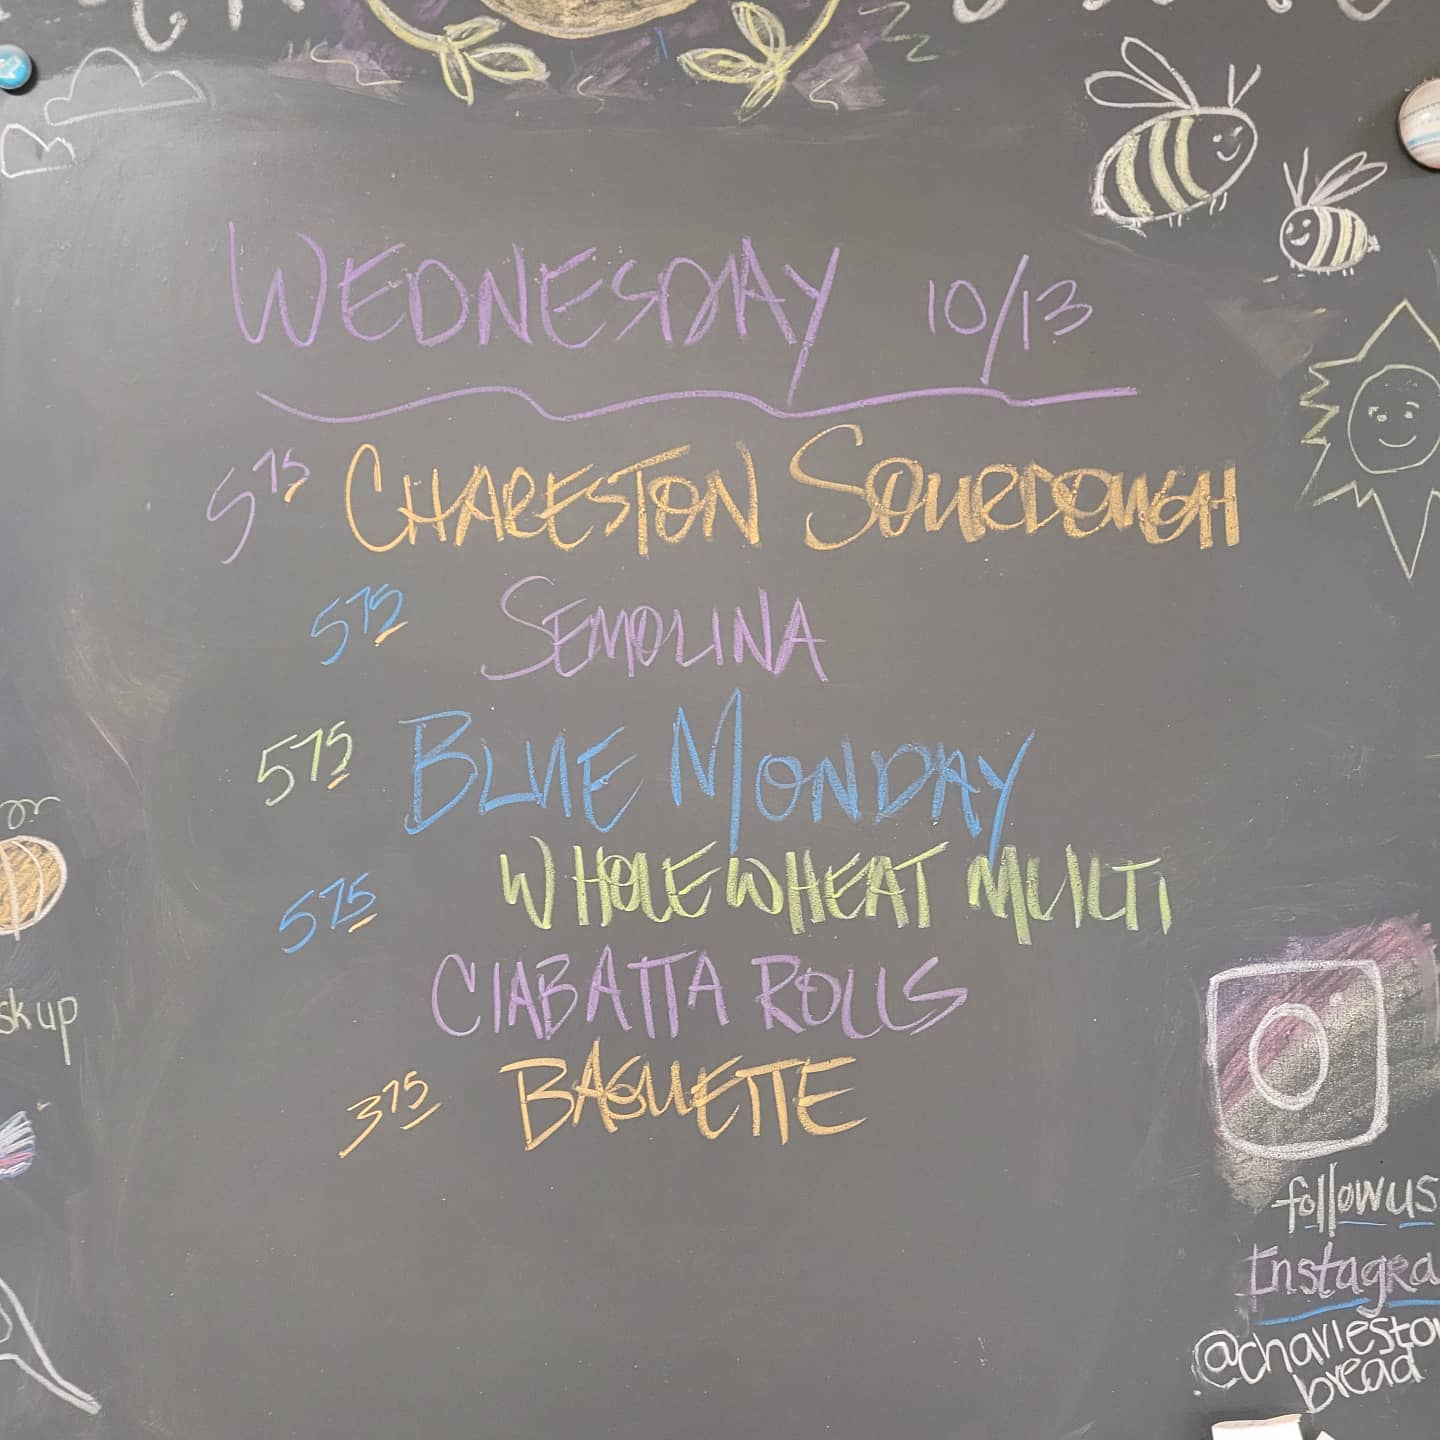 WEDNESDAY 10/13
5 75 CHARESTON SOURDOUGH
5 75 SEMOLINA
5 75 BLUE MONDAY
5 75 WHOLEWHEAT MULTI
CIABATTA ROLLS
3 75 BAGUETTE
sk up
follow us
Instagra
@charlesto
bread